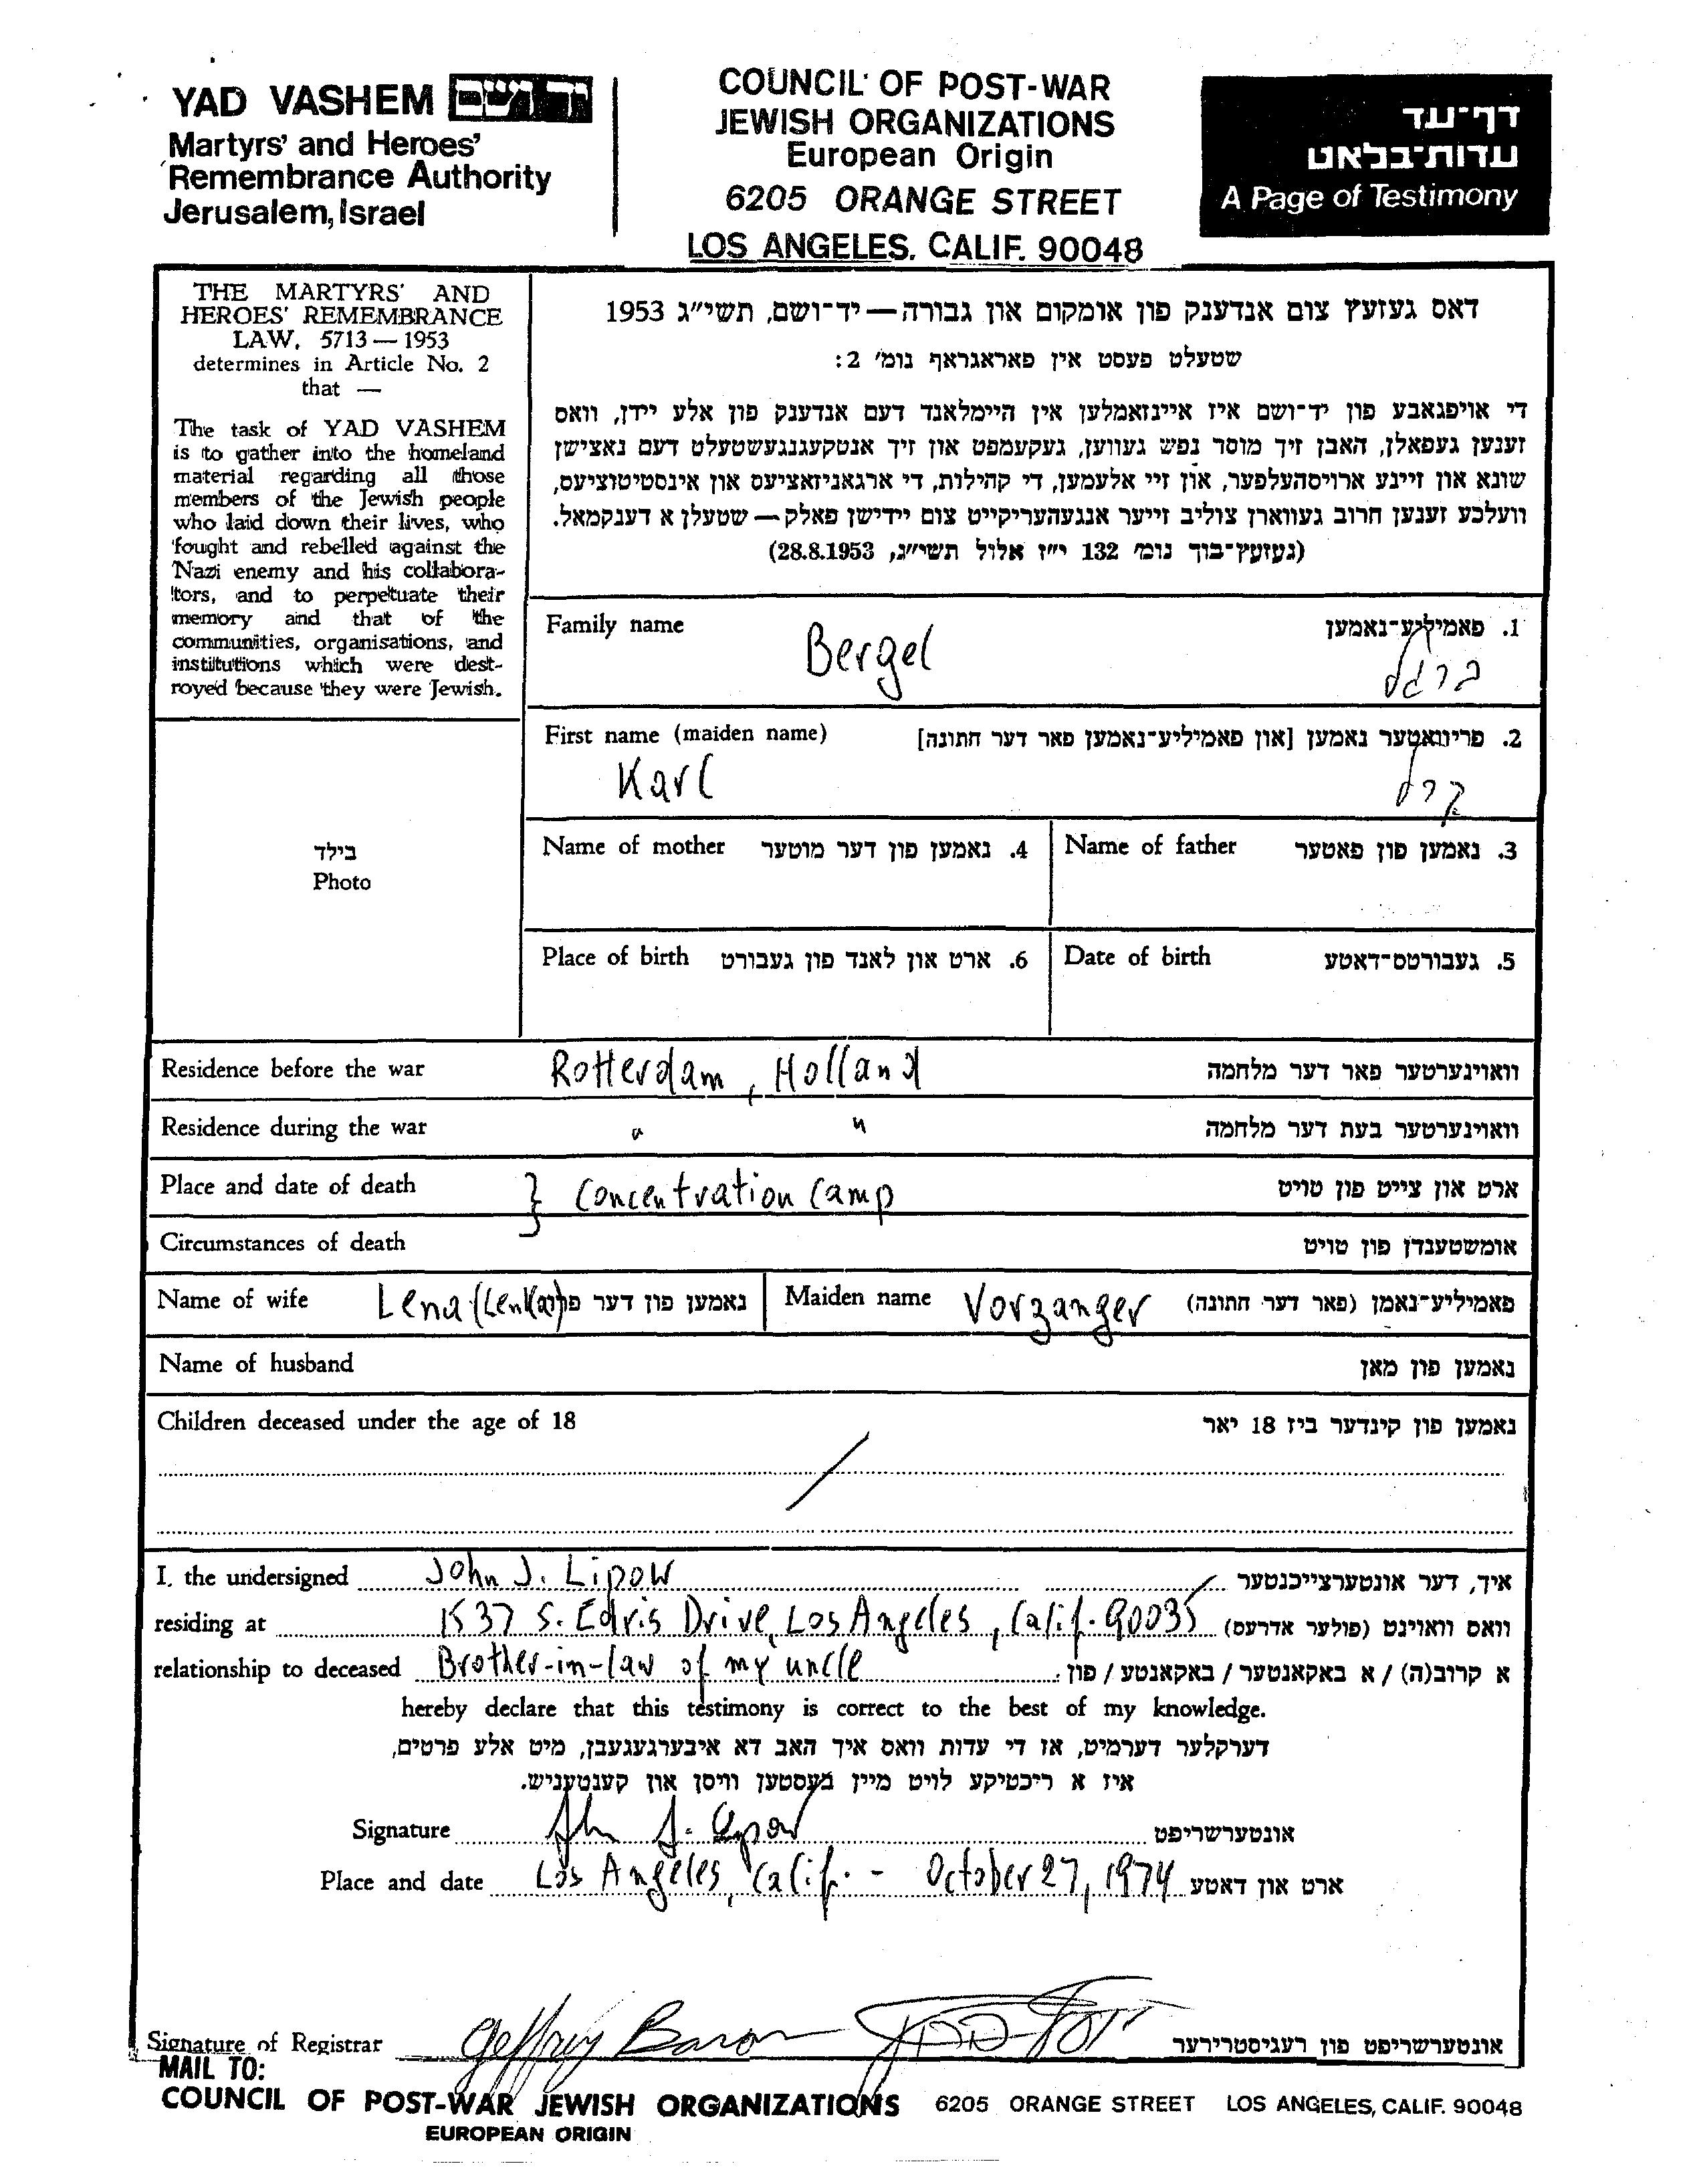 YAD VASHEM יד ושם
Martyrs' and Heroes'
Remembrance Authority
Jerusalem, Israel
COUNCIL OF POST-WAR
JEWISH ORGANIZATIONS
European Origin
6205 ORANGE STREET
LOS ANGELES, CALIF. 90048
דף-עד
עדות-בלאט
A Page of Testimony
THE MARTYRS' AND
HEROES' REMEMBRANCE
LAW, 5713 — 1953
determines in Article No. 2
that —
The task of YAD VASHEM
is to gather into the homeland
material regarding all those
members of the Jewish people
who laid down their lives, who
fought and rebelled against the
Nazi enemy and his collabora-
tors, and to perpetuate their
memory and that of the
communities, organisations, and
institutions which were dest-
royed because they were Jewish.
דאס געזעץ צום אנדענק פון אומקום און גבורה — יד-ושם, תשי״ג 1953
שטעלט פעסט אין פאראגראף נומ׳ 2:
די אויפגאבע פון יד-ושם איז איינזאמלען אין היימלאנד דעם אנדענק פון אלע יידן, וואס
זענען געפאלן, האבן זיך מוסר נפש געווען, געקעמפט און זיך אנטקעגנגעשטעלט דעם נאצישן
שונא און זיינע ארויסהעלפער, און זיי אלעמען, די קהילות, די ארגאניזאציעס און אינסטיטוציעס,
וועלכע זענען חרוב געווארן צוליב זייער אנגעהעריקייט צום יידישן פאלק — שטעלן א דענקמאל.
(געזעץ-בוך נומ׳ 132 י״ז אלול תשי״ג, 28.8.1953)
Family name Bergel 1. פאמיליע-נאמען
ברגל
First name (maiden name) 2. פריוואטער נאמען [און פאמיליע-נאמען פאר דער חתונה]
Karl קרל
בילד
Photo
Name of mother 4. נאמען פון דער מוטער Name of father 3. נאמען פון פאטער
Place of birth 6. ארט און לאנד פון געבורט Date of birth 5. געבורטס-דאטע
Residence before the war Rotterdam, Holland וואוינערטער פאר דער מלחמה
Residence during the war " " וואוינערטער בעת דער מלחמה
Place and date of death } Concentration Camp ארט און צייט פון טויט
Circumstances of death אומשטענדן פון טויט
Name of wife Lena (Lenka) נאמען פון דער פרוי Maiden name Vorzanger פאמיליע-נאמן (פאר דער חתונה)
Name of husband נאמען פון מאן
Children deceased under the age of 18 נאמען פון קינדער ביז 18 יאר
/
I, the undersigned John J. Lipow איך, דער אונטערצייכנטער
residing at 1537 S. Edris Drive, Los Angeles, Calif. 90035 וואס וואוינט (פולער אדרעס)
relationship to deceased Brother-in-law of my uncle א קרוב(ה) / א באקאנטער / באקאנטע / פון:
hereby declare that this testimony is correct to the best of my knowledge.
דערקלער דערמיט, אז די עדות וואס איך האב דא איבערגעגעבן, מיט אלע פרטים,
איז א ריכטיקע לויט מיין בעסטען וויסן און קענטעניש.
Signature John J. Lipow אונטערשריפט
Place and date Los Angeles, Calif. - October 27, 1974 ארט און דאטע
Signature of Registrar Geffrey Baron אונטערשריפט פון רעגיסטרירער
MAIL TO:
COUNCIL OF POST-WAR JEWISH ORGANIZATIONS 6205 ORANGE STREET LOS ANGELES, CALIF. 90048
EUROPEAN ORIGIN